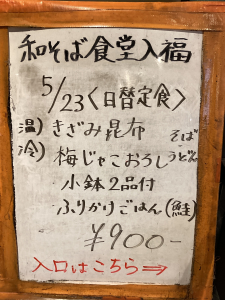 和そば食堂入福
5/23〈日替定食〉
温) きざみ昆布 そば
冷) 梅じゃこおろし うどん
小鉢2品付
ふりかけごはん(鮭)
¥900-
入口はこちら⇒